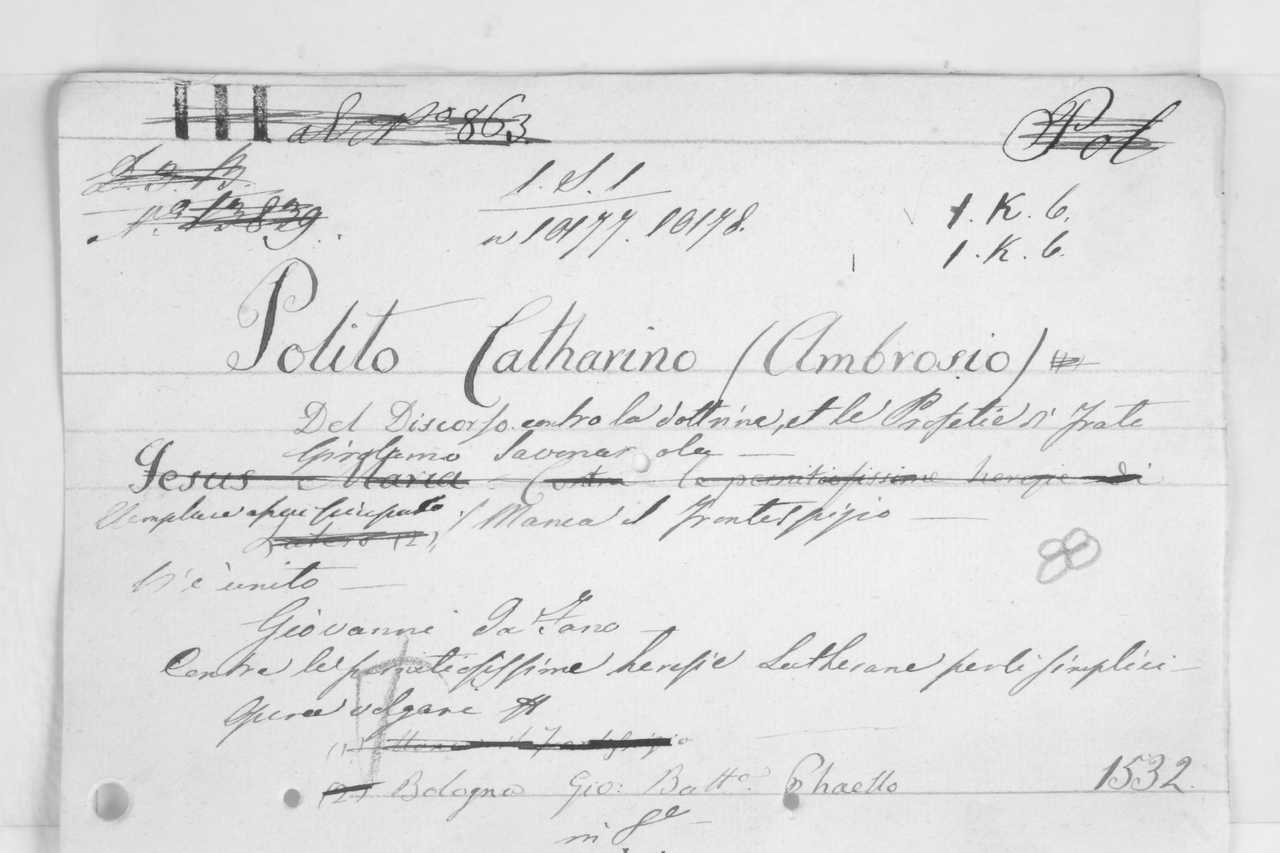 III 863 Pol
1. S. 1 1. K. 6.
N.º 13839. n 10177. 10178. 1. K. 6.
Polito Catharino (Ambrosio)
Del Discorso contro la dottrina, et le Profetie di Frate
Girolamo Savonarola —
Jesus e Maria Contra le pernitiosissime heregie di
Esemplare / Manca il Frontespizio —
Lutero (2),
V'è unito —
Giovanni da Fano —
Contra le pernitiosissime heresie Lutherane per li simplici —
Opera volgare
(1) Manca il Frontispizio
(2) Bologna Gio: Batt.ª Phaello 1532.
in 8º —